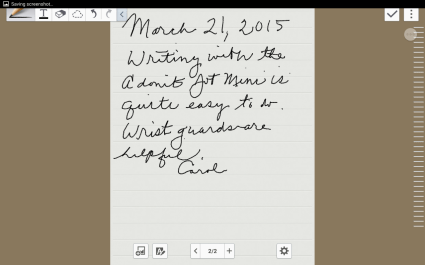 Saving screenshot...
T
March 21, 2015
Writing with the
Adonit Jot Mini is
quite easy to do.
Wrist guards are
helpful.
Carol
2/2